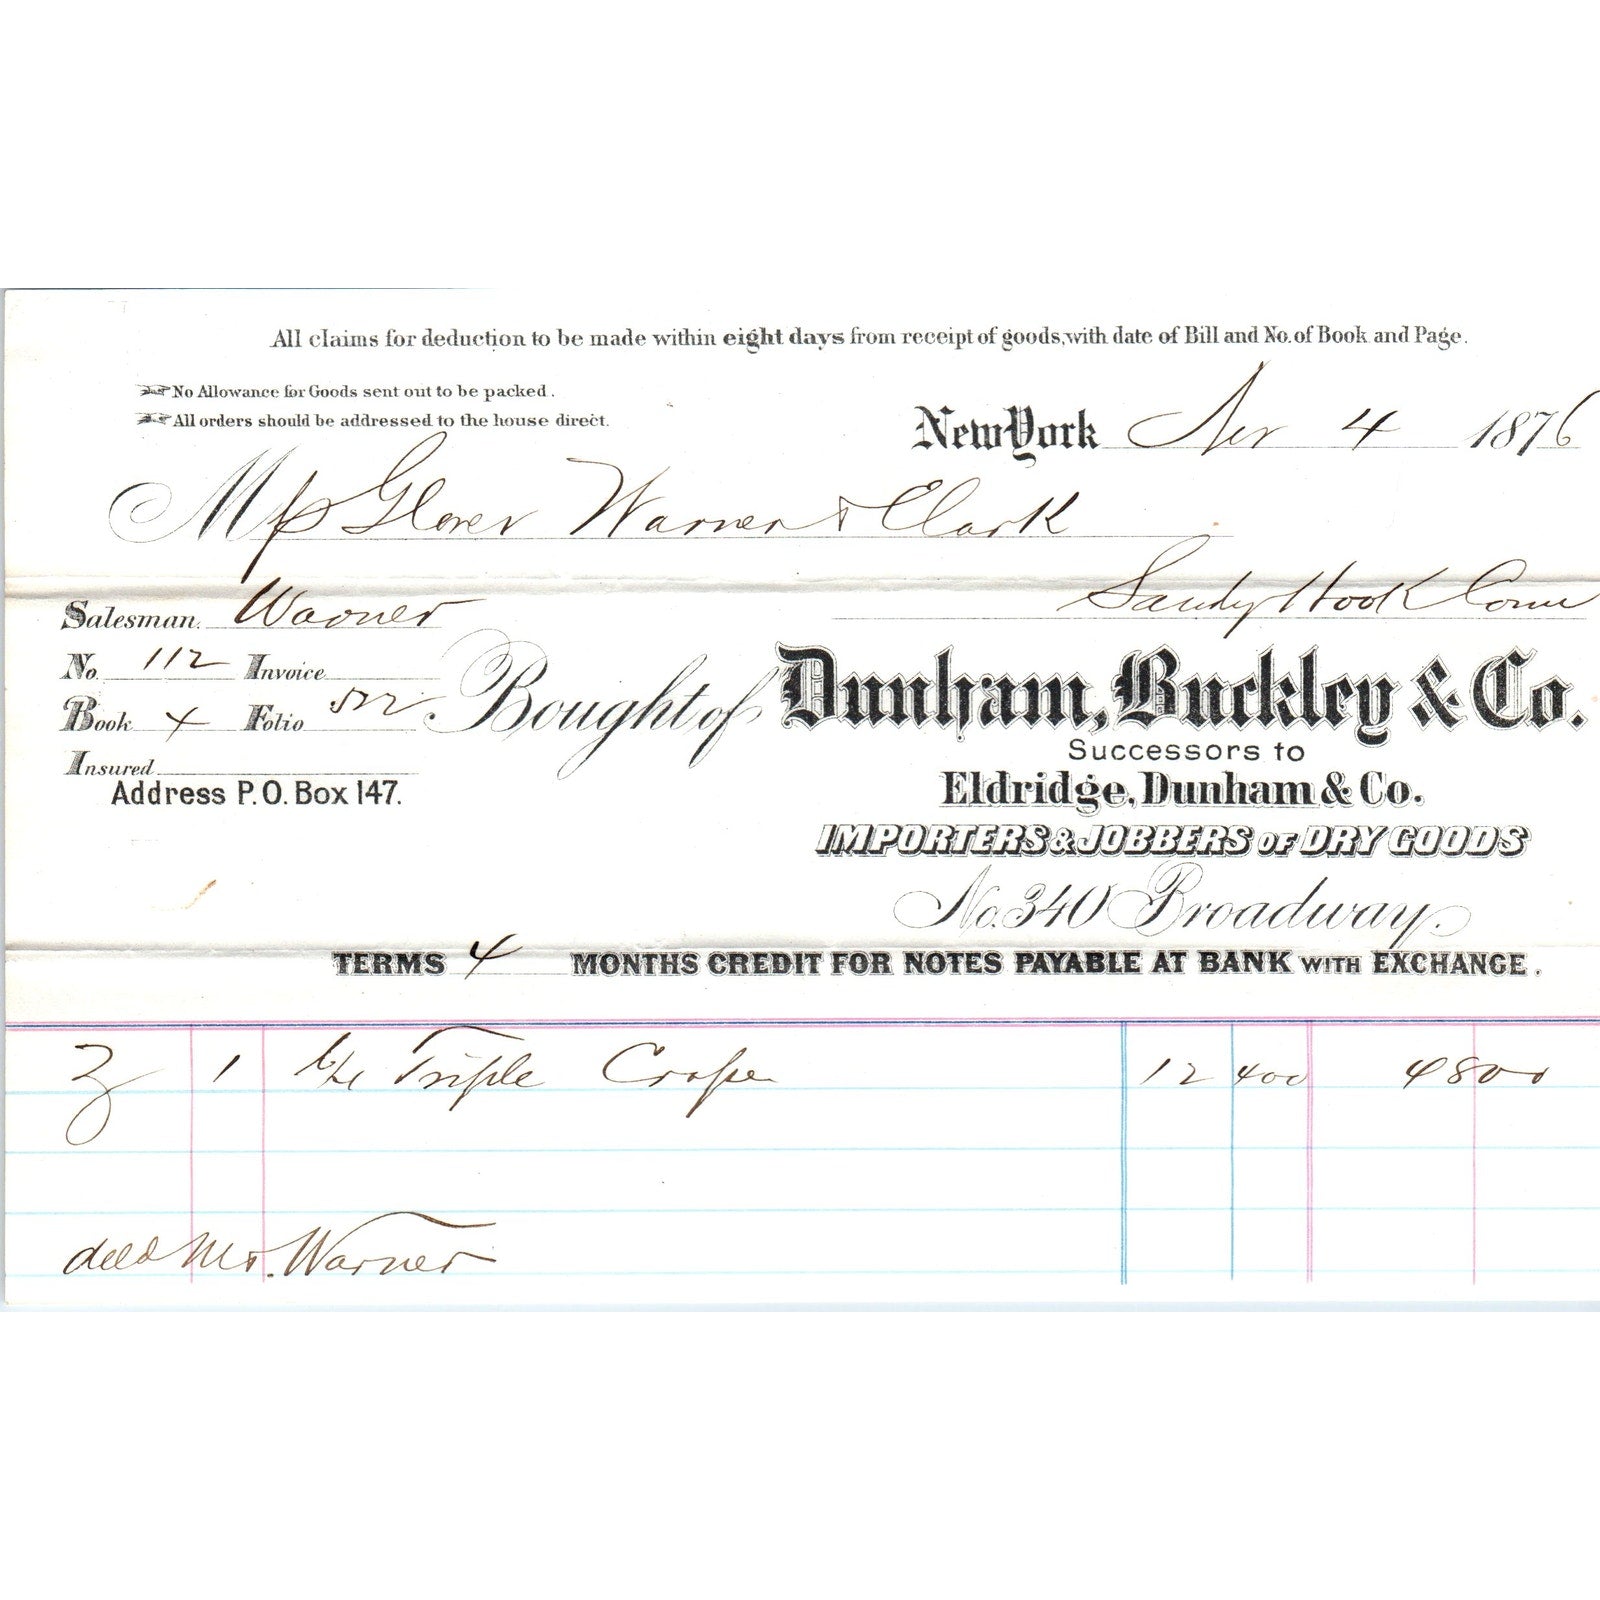 All claims for deduction to be made within eight days from receipt of goods, with date of Bill and No. of Book and Page.
No Allowance for Goods sent out to be packed.
All orders should be addressed to the house direct.
New York Nov 4 1876
M Glover Warner & Clark
Sandy Hook Conn
Salesman. Warner
No. 112 Invoice
Book 4 Folio 522
Insured
Address P.O. Box 147.
Bought of Dunham, Buckley & Co.
Successors to
Eldridge, Dunham & Co.
IMPORTERS & JOBBERS OF DRY GOODS
No. 340 Broadway.
TERMS 4 MONTHS CREDIT FOR NOTES PAYABLE AT BANK WITH EXCHANGE.
1 Triple Crape 12 400 4800
deld Mr. Warner